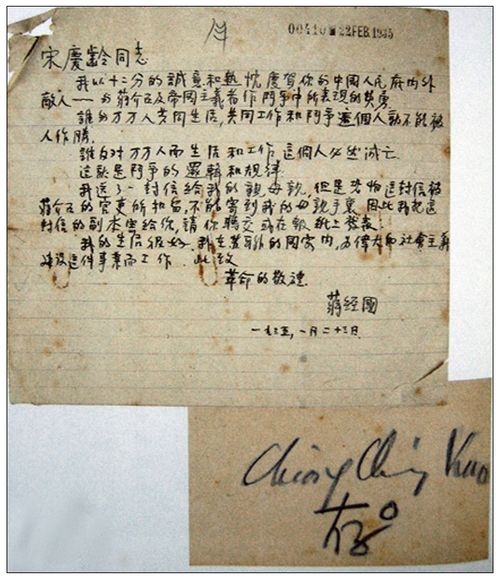 00410 22 FEB. 1935
宋慶齡同志
我以十二分的誠意和熱忱慶賀你的中國人民底內外
敵人——的蔣介石及帝國主義者作鬥爭中所表現的英勇
誰的万万人共同生活,共同工作和鬥爭這個人就不能被
人作勝.
誰反对万万人而生活和工作 這個人必然滅亡
這就是鬥爭的邏輯和規律
我送了一封信給我的親母親,但是恐怕這封信被
蔣介石的官吏所扣留,不能寄到我的母親手裏 因此我把這
封信的副本寄給你,請你轉交或在報紙上發表.
我的生活很好,我在蘇聯的國家內,為偉大的社會主義
建設這件事業而工作. 此致
革命的敬禮
蔣經國
一九三五,一月二十三日
Chiang Ching Kuo